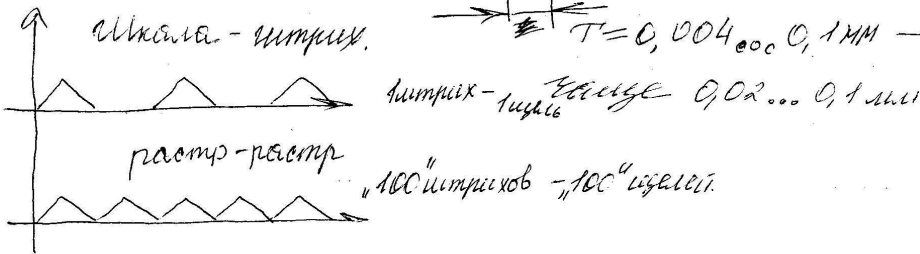 Шкала - штрих.
T = 0,004 ... 0,1 мм —
1штрих - 1щель
чаще 0,02 ... 0,1 мм
растр-растр
„100" штрихов - „100" щелей.